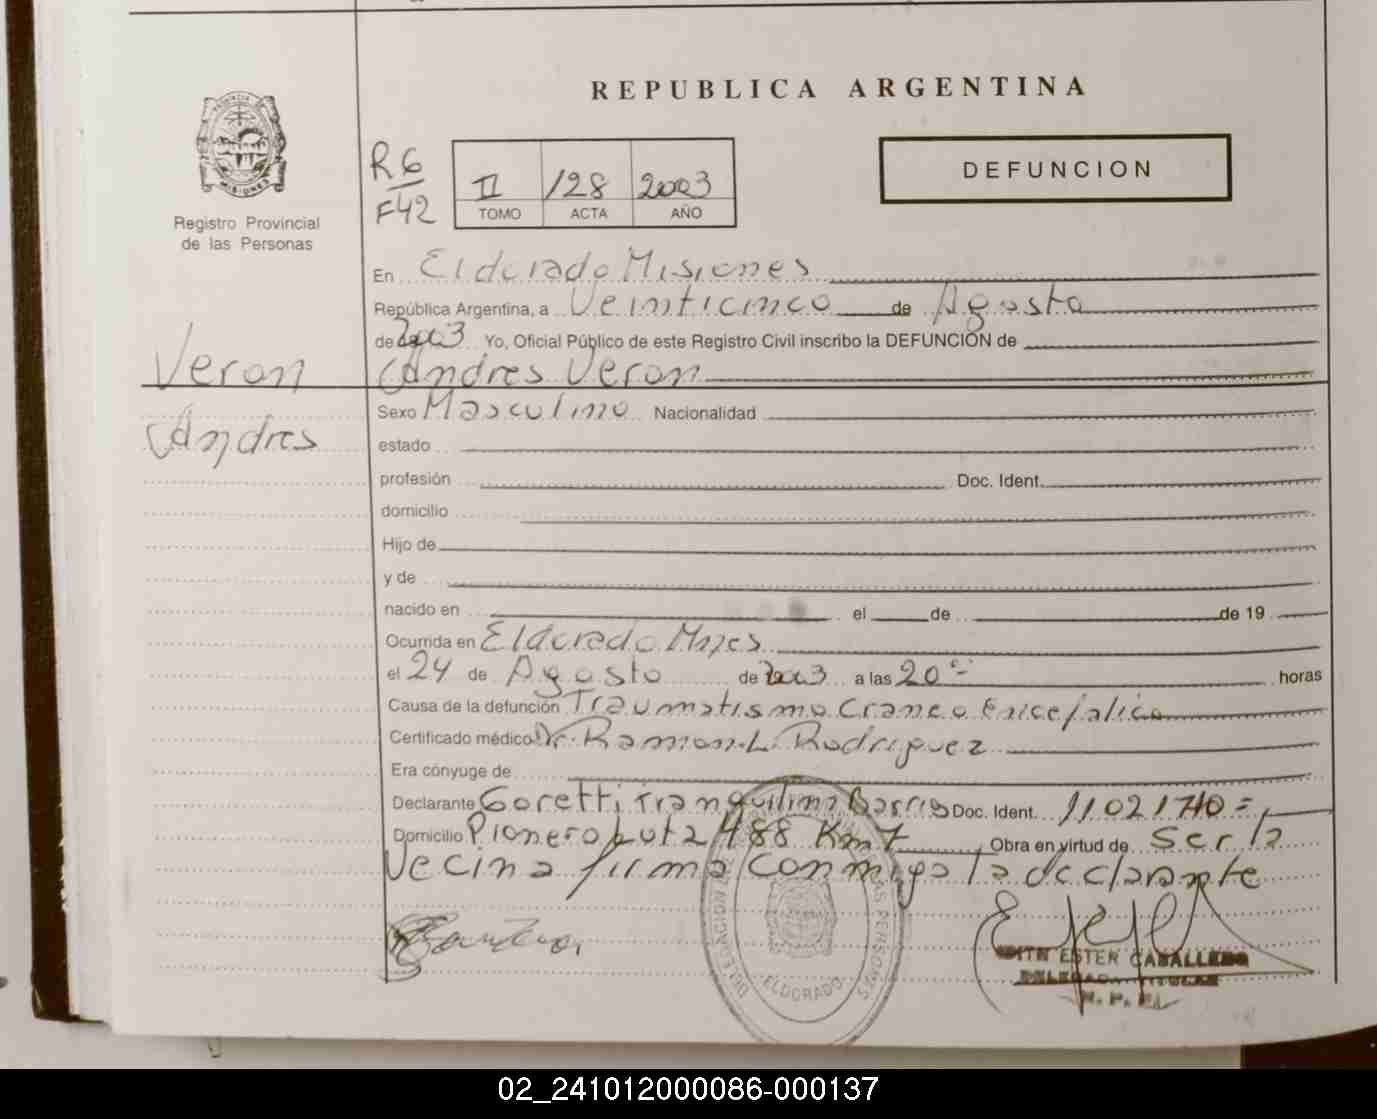 REPUBLICA ARGENTINA
PROVINCIA DE
MISIONES
Registro Provincial
de las Personas
R6
F42
II 128 2003
TOMO ACTA AÑO
DEFUNCION
En Eldorado Misiones
República Argentina, a Veinticinco de Agosto
de 2003 Yo, Oficial Público de este Registro Civil inscribo la DEFUNCIÓN de
Veron Andres Veron
Sexo Masculino Nacionalidad
Andres
estado
profesión Doc. Ident.
domicilio
Hijo de
y de
nacido en el de de 19
Ocurrida en Eldorado Mnes
el 24 de Agosto de 2003 a las 20 horas
Causa de la defunción Traumatismo Craneo Encefalico
Certificado médico Dr. Ramon L. Rodriguez
Era cónyuge de
Declarante Goretti Tranquilina Barris Doc. Ident. 11021710=
Domicilio Pionero ruta 488 Km 7 Obra en virtud de ser la
Vecina firma conmigo la declarante
EDITH ESTER CABALLERO
DELEGADA TITULAR
R. P. P.
ELDORADO
02_241012000086-000137